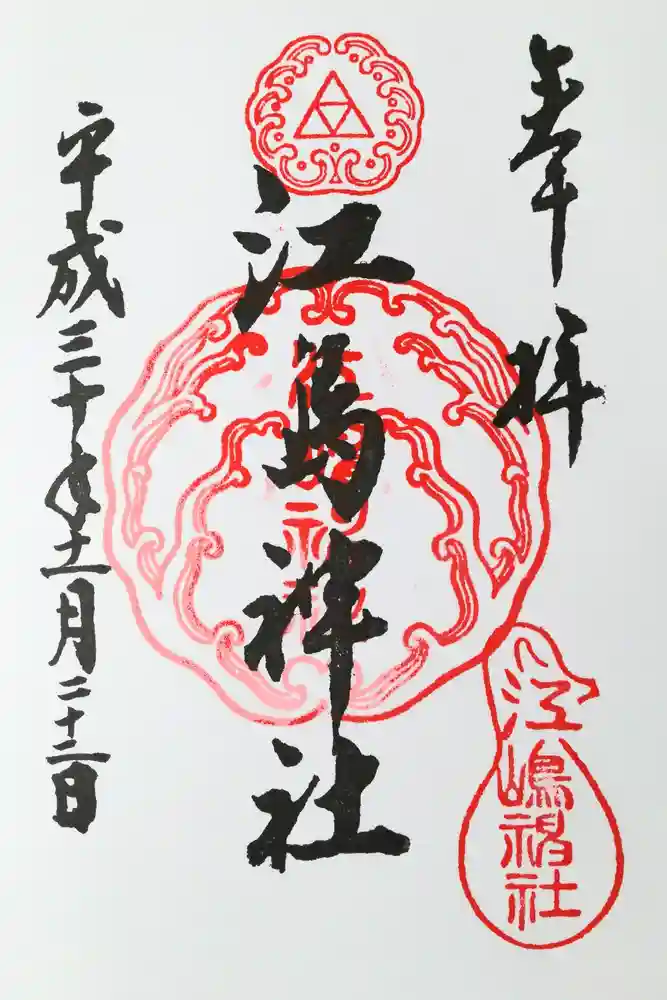 奉拝
江島神社
平成三十年十一月二十二日
江嶋神社